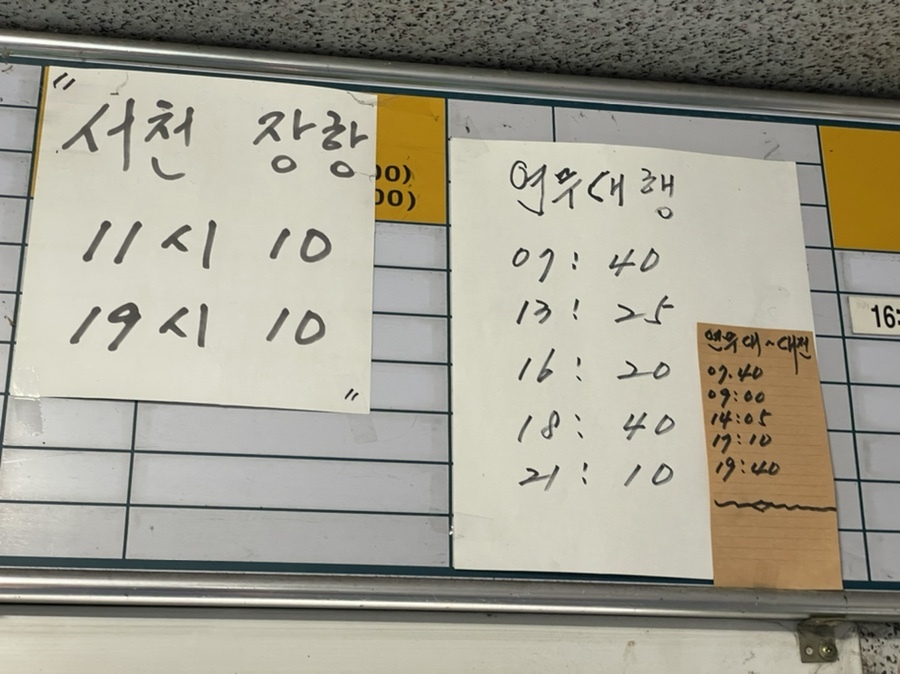 " 서천 장항
11시 10
19시 10 "
00)
00)
연무대행
07:40
13:25
16:20
18:40
21:10
연무대~대전
07.40
09:00
14:05
17:10
19:40
16: